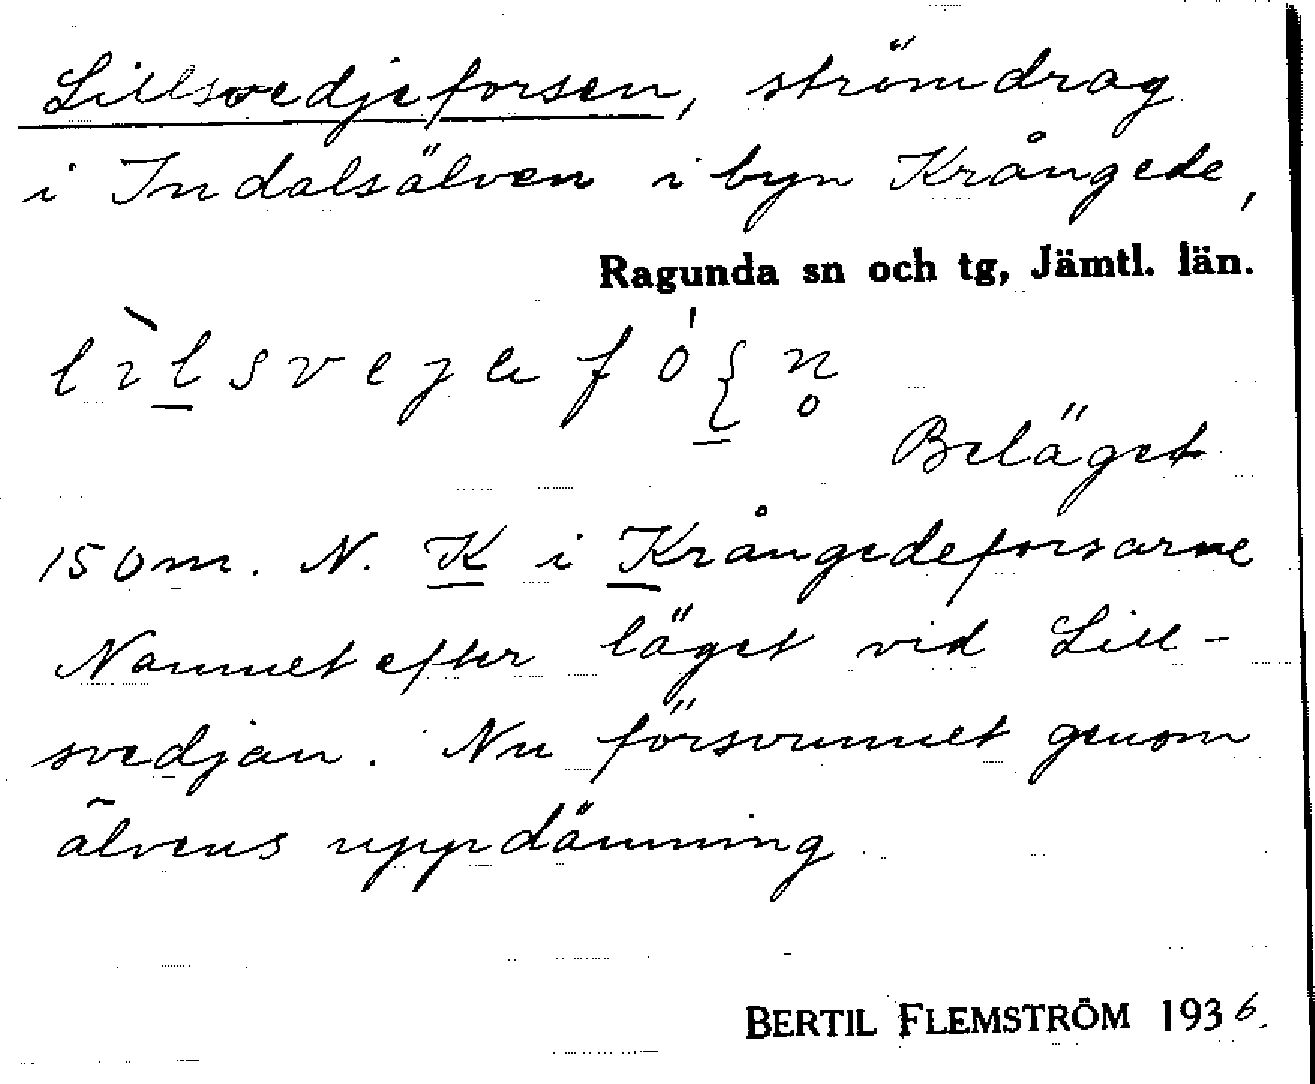 Lillsvedjeforsen, strömdrag
i Indalsälven i byn Krångede,
Ragunda sn och tg, Jämtl. län.
Beläget
150m. N. K i Krångedeforsarne
Namnet efter läget vid Lill-
svedjan. Nu försvunnet genom
älvens uppdämning
BERTIL FLEMSTRÖM 1936.